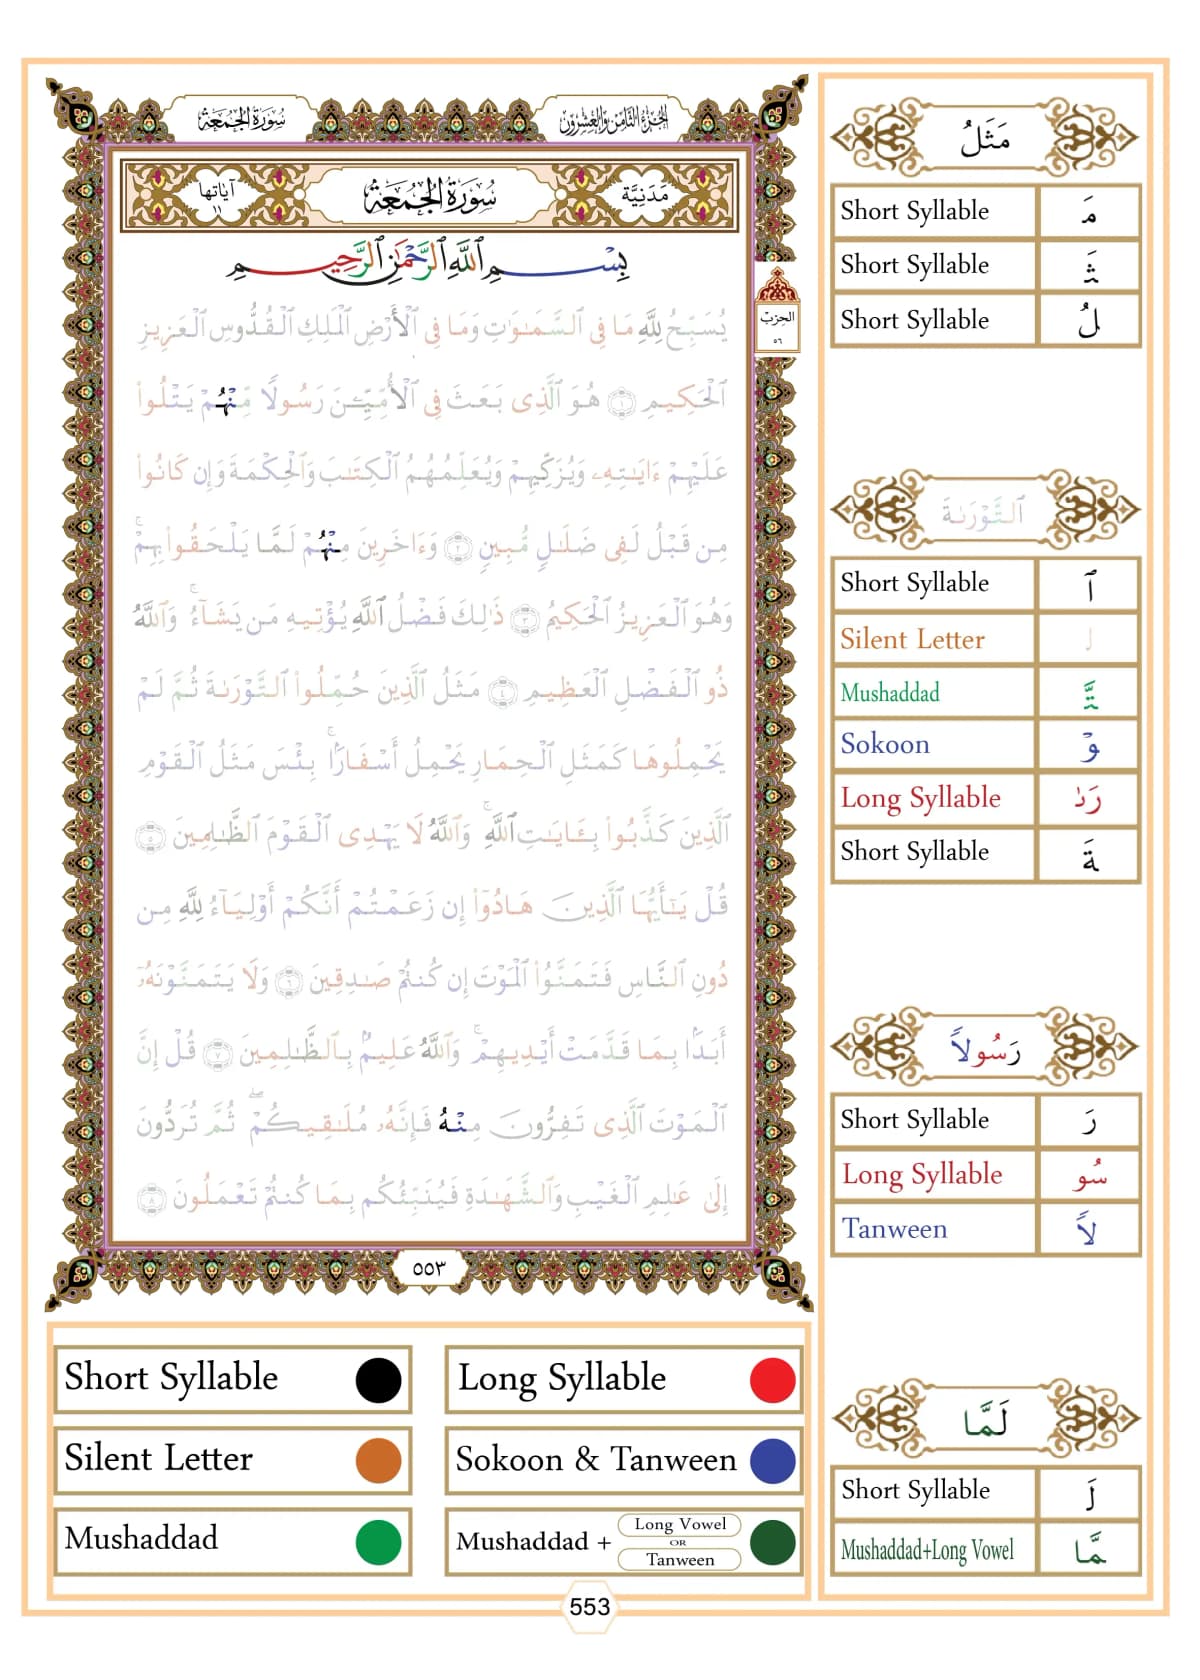 سُورَةُ الجُمُعَةِ
الجُزءُ الثَّامِنُ وَالعِشرُونَ
مَدَنِيَّة
سُورَةُ الجُمُعَةِ
آيَاتُهَا ١١
بِسْمِ ٱللَّهِ ٱلرَّحْمَٰنِ ٱلرَّحِيمِ
يُسَبِّحُ لِلَّهِ مَا فِى ٱلسَّمَٰوَٰتِ وَمَا فِى ٱلْأَرْضِ ٱلْمَلِكِ ٱلْقُدُّوسِ ٱلْعَزِيزِ
ٱلْحَكِيمِ ١ هُوَ ٱلَّذِى بَعَثَ فِى ٱلْأُمِّيِّـۧنَ رَسُولًا مِّنْهُمْ يَتْلُوا۟
عَلَيْهِمْ ءَايَٰتِهِۦ وَيُزَكِّيهِمْ وَيُعَلِّمُهُمُ ٱلْكِتَٰبَ وَٱلْحِكْمَةَ وَإِن كَانُوا۟
مِن قَبْلُ لَفِى ضَلَٰلٍ مُّبِينٍ ٢ وَءَاخَرِينَ مِنْهُمْ لَمَّا يَلْحَقُوا۟ بِهِمْ ۚ
وَهُوَ ٱلْعَزِيزُ ٱلْحَكِيمُ ٣ ذَٰلِكَ فَضْلُ ٱللَّهِ يُؤْتِيهِ مَن يَشَآءُ ۚ وَٱللَّهُ
ذُو ٱلْفَضْلِ ٱلْعَظِيمِ ٤ مَثَلُ ٱلَّذِينَ حُمِّلُوا۟ ٱلتَّوْرَىٰةَ ثُمَّ لَمْ
يَحْمِلُوهَا كَمَثَلِ ٱلْحِمَارِ يَحْمِلُ أَسْفَارًۢا ۚ بِئْسَ مَثَلُ ٱلْقَوْمِ
ٱلَّذِينَ كَذَّبُوا۟ بِـَٔايَٰتِ ٱللَّهِ ۚ وَٱللَّهُ لَا يَهْدِى ٱلْقَوْمَ ٱلظَّٰلِمِينَ ٥
قُلْ يَٰٓأَيُّهَا ٱلَّذِينَ هَادُوٓا۟ إِن زَعَمْتُمْ أَنَّكُمْ أَوْلِيَآءُ لِلَّهِ مِن
دُونِ ٱلنَّاسِ فَتَمَنَّوُا۟ ٱلْمَوْتَ إِن كُنتُمْ صَٰدِقِينَ ٦ وَلَا يَتَمَنَّوْنَهُۥٓ
أَبَدًۢا بِمَا قَدَّمَتْ أَيْدِيهِمْ ۚ وَٱللَّهُ عَلِيمٌۢ بِٱلظَّٰلِمِينَ ٧ قُلْ إِنَّ
ٱلْمَوْتَ ٱلَّذِى تَفِرُّونَ مِنْهُ فَإِنَّهُۥ مُلَٰقِيكُمْ ۖ ثُمَّ تُرَدُّونَ
إِلَىٰ عَٰلِمِ ٱلْغَيْبِ وَٱلشَّهَٰدَةِ فَيُنَبِّئُكُم بِمَا كُنتُمْ تَعْمَلُونَ ٨
الحِزب
٥٦
٥٥٣
مَثَلُ
Short Syllable مَـ
Short Syllable ـثَـ
Short Syllable ـلُ
ٱلتَّوْرَىٰةَ
Short Syllable ٱَ
Silent Letter لـ
Mushaddad ـتَّـ
Sokoon ـوْ
Long Syllable رَىٰ
Short Syllable ـةَ
رَسُولاً
Short Syllable رَ
Long Syllable سُو
Tanween لاً
لَمَّا
Short Syllable لَـ
Mushaddad+Long Vowel ـمَّا
Short Syllable
Long Syllable
Silent Letter
Sokoon & Tanween
Mushaddad
Mushaddad + Long Vowel OR Tanween
553